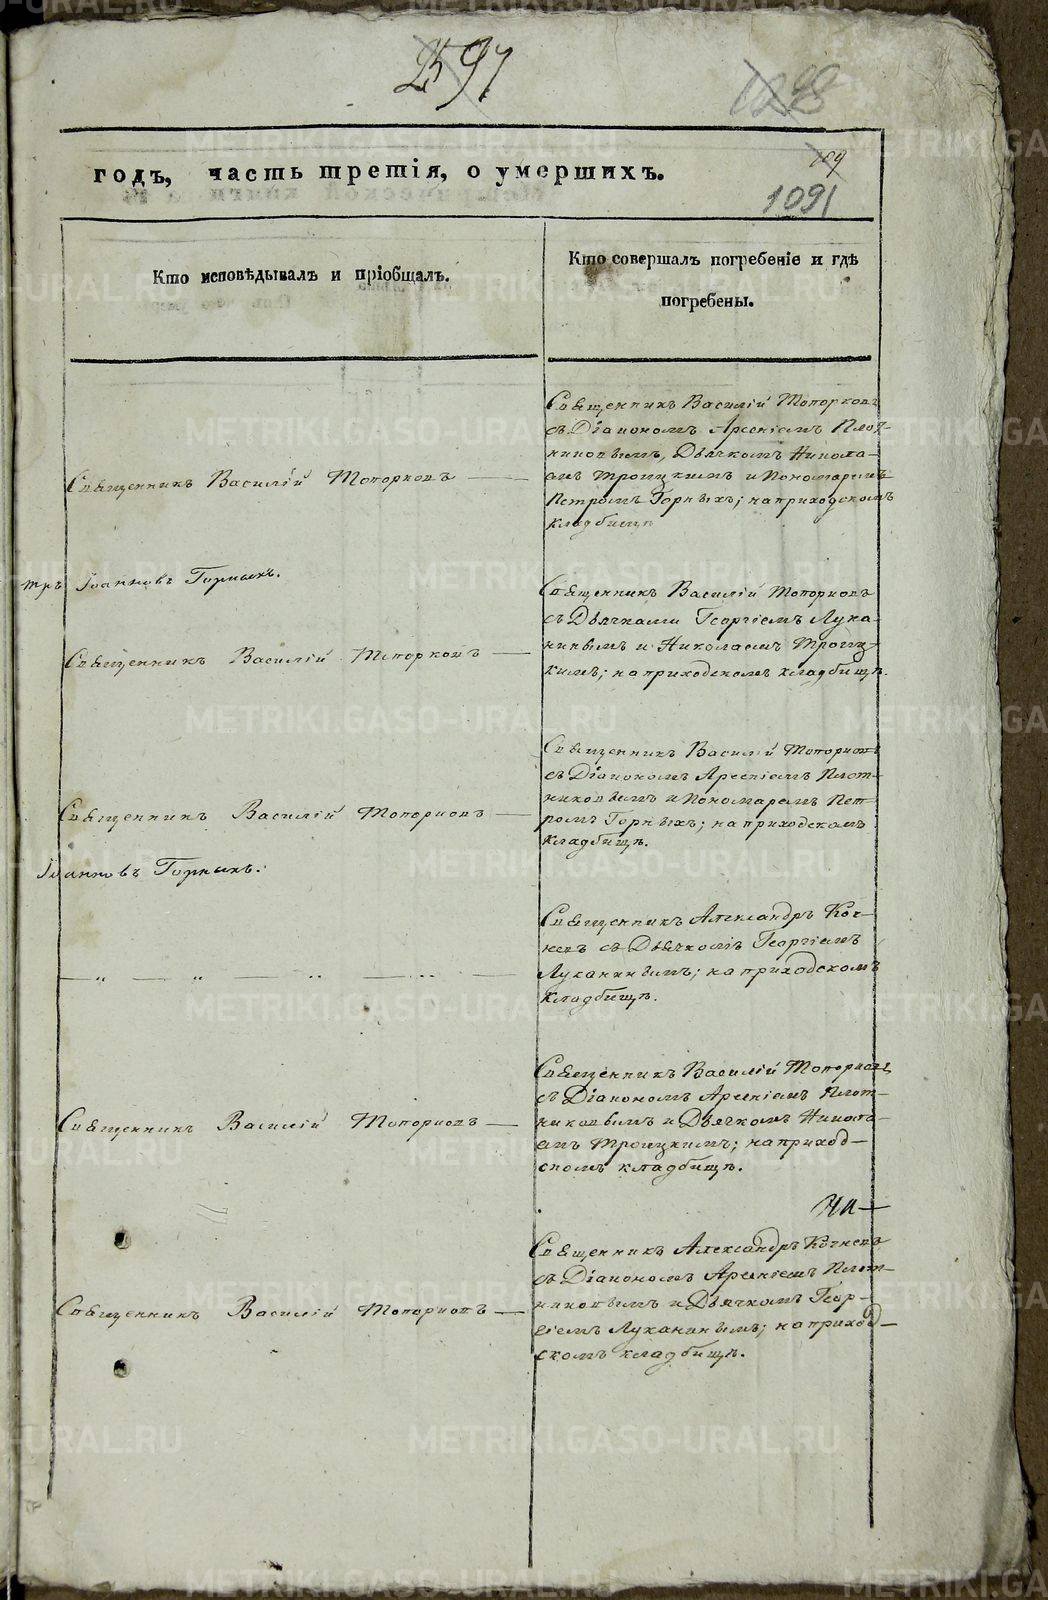 97
1298
109
1091
годъ, часть третія, о умершихъ.
Кто исповѣдывалъ и пріобщалъ.
Кто совершалъ погребеніе и гдѣ
погребены.
Священникъ Василій Топорковъ
Священникъ Василій Топорковъ
съ Діакономъ Арсеніемъ Плот-
никовымъ, Дьячкомъ Никола-
емъ Троицкимъ и Пономаремъ
Петромъ Горныхъ; на приходскомъ
кладбищѣ
тръ Іоанновъ Горныхъ.
Священникъ Василій Топорковъ
Священникъ Василій Топорковъ
съ Дьячками Георгіемъ Лука-
нинымъ и Николаемъ Троиц-
кимъ; на приходскомъ кладбищѣ.
Священникъ Василій Топорковъ
Священникъ Василій Топорковъ
съ Діакономъ Арсеніемъ Плот-
никовымъ и Пономаремъ Пет-
ромъ Горныхъ; на приходскомъ
кладбищѣ.
Іоанновъ Горныхъ.
— „ — „ — „ — „ —
Священникъ Александръ Коч-
невъ съ Дьячкомъ Георгіемъ
Луканинымъ; на приходскомъ
кладбищѣ.
Священникъ Василій Топорковъ
Священникъ Василій Топорковъ
съ Діакономъ Арсеніемъ Плот-
никовымъ и Дьячкомъ Никола-
емъ Троицкимъ; на приход-
скомъ кладбищѣ.
Священникъ Василій Топорковъ
Священникъ Александръ Кочневъ
съ Діакономъ Арсеніемъ Плот-
никовымъ и Дьячкомъ Геор-
гіемъ Луканинымъ; на приход-
скомъ кладбищѣ.
METRIKI.GASO-URAL.RU